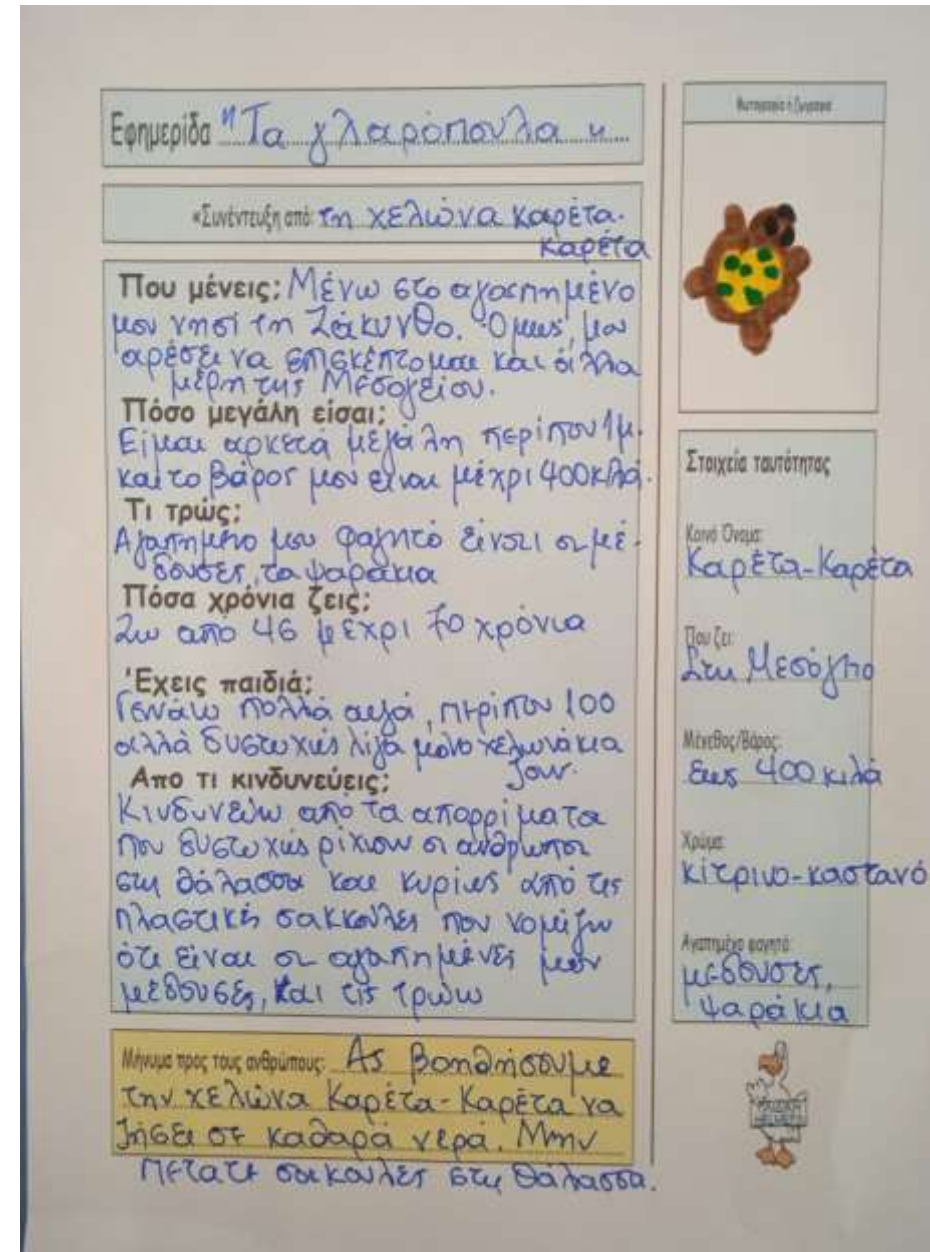 Εφημερίδα "Τα γλαρόπουλα"
«Συνέντευξη από: τη χελώνα καρέτα-
καρέτα
Που μένεις; Μένω στο αγαπημένο
μου νησί τη Ζάκυνθο. Όμως, μου
αρέσει να επισκέπτομαι και άλλα
μέρη της Μεσογείου.
Πόσο μεγάλη είσαι;
Είμαι αρκετά μεγάλη περίπου 1μ.
και το βάρος μου είναι μέχρι 400κιλά.
Τι τρώς;
Αγαπημένο μου φαγητό είναι οι μέ-
δουσες, τα ψαράκια
Πόσα χρόνια ζεις;
Ζω από 46 μέχρι 70 χρόνια
Έχεις παιδιά;
Γεννάω πολλά αυγά, περίπου 100
αλλά δυστυχώς λίγα μόνο χελωνάκια
ζουν.
Απο τι κινδυνεύεις;
Κινδυνεύω από τα απορρίματα
που δυστυχώς ρίχνουν οι άνθρωποι
στη θάλασσα και κυρίως από τις
πλαστικές σακκούλες που νομίζω
ότι είναι οι αγαπημένες μου
μέδουσες, και τις τρώω
Μήνυμα προς τους ανθρώπους: Ας βοηθήσουμε
την χελώνα Καρέτα-Καρέτα να
ζήσει σε καθαρά νερά. Μην
πετάτε σακούλες στη θάλασσα.
Φωτογραφία ή ζωγραφιά
Στοιχεία ταυτότητας
Κοινό Όνομα:
Καρέτα-Καρέτα
Που ζει:
Στη Μεσόγειο
Μέγεθος/Βάρος:
έως 400 κιλά
Χρώμα:
κίτρινο-καστανό
Αγαπημένο φαγητό:
μέδουσες,
ψαράκια